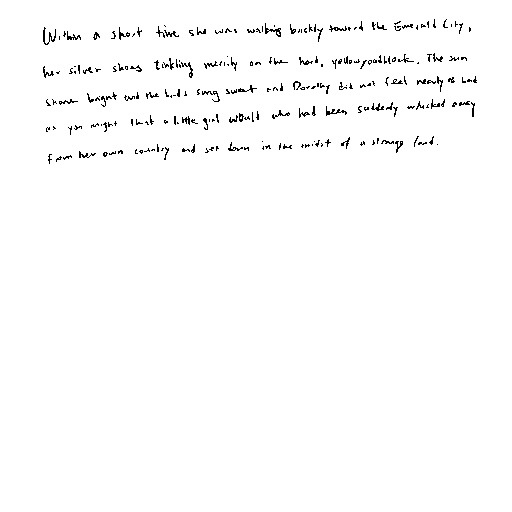 Within a short time she was walking briskly toward the Emerald City,
her silver shoes tinkling merrily on the hard, yellow roadblock. The sun
shone bright and the birds sang sweet and Dorothy did not feel nearly as bad
as you might that a little girl would who had been suddenly whisked away
from her own country and set down in the midst of a strange land.